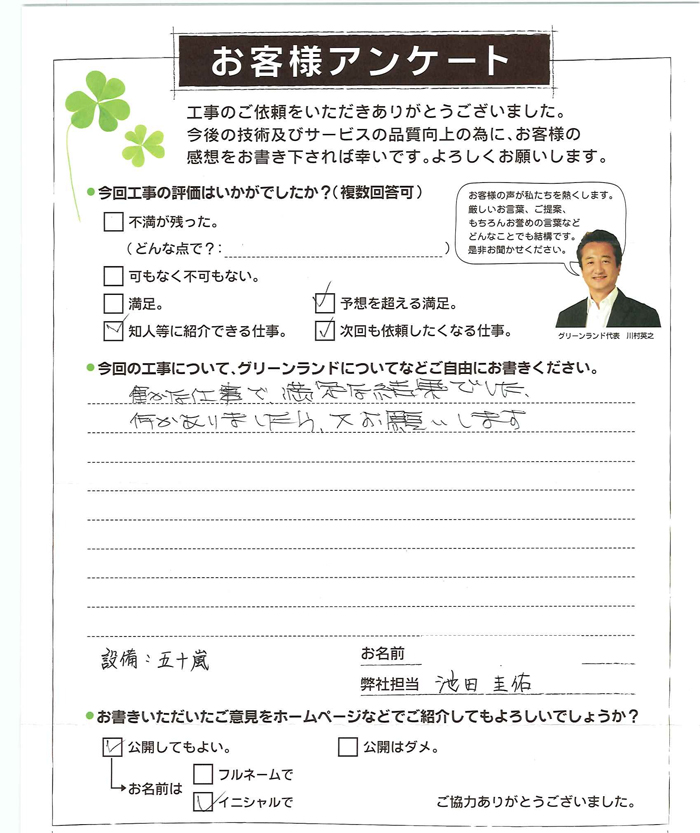 お客様アンケート
工事のご依頼をいただきありがとうございました。
今後の技術及びサービスの品質向上の為に、お客様の
感想をお書き下されば幸いです。よろしくお願いします。
●今回工事の評価はいかがでしたか?(複数回答可)
不満が残った。
(どんな点で?: )
可もなく不可もない。
満足。
予想を超える満足。
知人等に紹介できる仕事。
次回も依頼したくなる仕事。
お客様の声が私たちを熱くします。
厳しいお言葉、ご提案、
もちろんお誉めの言葉など
どんなことでも結構です。
是非お聞かせください。
グリーンランド代表 川村英之
●今回の工事について、グリーンランドについてなどご自由にお書きください。
な仕事で、満足な結果でした、
何かありましたら、又お願いします
設備:五十嵐
お名前
弊社担当 池田 圭佑
●お書きいただいたご意見をホームページなどでご紹介してもよろしいでしょうか?
公開してもよい。
公開はダメ。
お名前は
フルネームで
イニシャルで
ご協力ありがとうございました。